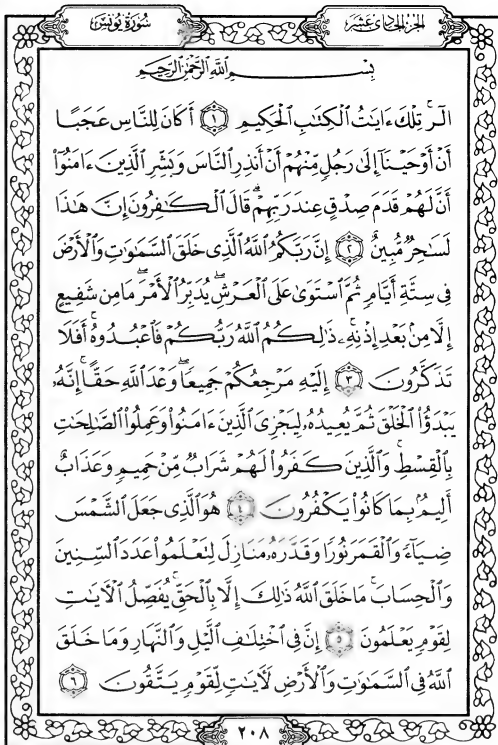 الجزء الحادي عشر
سورة يونس
بِسْمِ اللَّهِ الرَّحْمَٰنِ الرَّحِيمِ
الٓرۚ تِلْكَ ءَايَٰتُ ٱلْكِتَٰبِ ٱلْحَكِيمِ ١ أَكَانَ لِلنَّاسِ عَجَبًا
أَنْ أَوْحَيْنَآ إِلَىٰ رَجُلٍ مِّنْهُمْ أَنْ أَنذِرِ ٱلنَّاسَ وَبَشِّرِ ٱلَّذِينَ ءَامَنُوٓا۟
أَنَّ لَهُمْ قَدَمَ صِدْقٍ عِندَ رَبِّهِمْۗ قَالَ ٱلْكَٰفِرُونَ إِنَّ هَٰذَا
لَسَٰحِرٌ مُّبِينٌ ٢ إِنَّ رَبَّكُمُ ٱللَّهُ ٱلَّذِى خَلَقَ ٱلسَّمَٰوَٰتِ وَٱلْأَرْضَ
فِى سِتَّةِ أَيَّامٍ ثُمَّ ٱسْتَوَىٰ عَلَى ٱلْعَرْشِۖ يُدَبِّرُ ٱلْأَمْرَۖ مَا مِن شَفِيعٍ
إِلَّا مِنۢ بَعْدِ إِذْنِهِۦۚ ذَٰلِكُمُ ٱللَّهُ رَبُّكُمْ فَٱعْبُدُوهُۚ أَفَلَا
تَذَكَّرُونَ ٣ إِلَيْهِ مَرْجِعُكُمْ جَمِيعًاۖ وَعْدَ ٱللَّهِ حَقًّاۚ إِنَّهُۥ
يَبْدَؤُا۟ ٱلْخَلْقَ ثُمَّ يُعِيدُهُۥ لِيَجْزِىَ ٱلَّذِينَ ءَامَنُوا۟ وَعَمِلُوا۟ ٱلصَّٰلِحَٰتِ
بِٱلْقِسْطِۚ وَٱلَّذِينَ كَفَرُوا۟ لَهُمْ شَرَابٌ مِّنْ حَمِيمٍ وَعَذَابٌ
أَلِيمٌۢ بِمَا كَانُوا۟ يَكْفُرُونَ ٤ هُوَ ٱلَّذِى جَعَلَ ٱلشَّمْسَ
ضِيَآءً وَٱلْقَمَرَ نُورًا وَقَدَّرَهُۥ مَنَازِلَ لِتَعْلَمُوا۟ عَدَدَ ٱلسِّنِينَ
وَٱلْحِسَابَۚ مَا خَلَقَ ٱللَّهُ ذَٰلِكَ إِلَّا بِٱلْحَقِّۚ يُفَصِّلُ ٱلْءَايَٰتِ
لِقَوْمٍ يَعْلَمُونَ ٥ إِنَّ فِى ٱخْتِلَٰفِ ٱلَّيْلِ وَٱلنَّهَارِ وَمَا خَلَقَ
ٱللَّهُ فِى ٱلسَّمَٰوَٰتِ وَٱلْأَرْضِ لَءَايَٰتٍ لِّقَوْمٍ يَتَّقُونَ ٦
٢٠٨